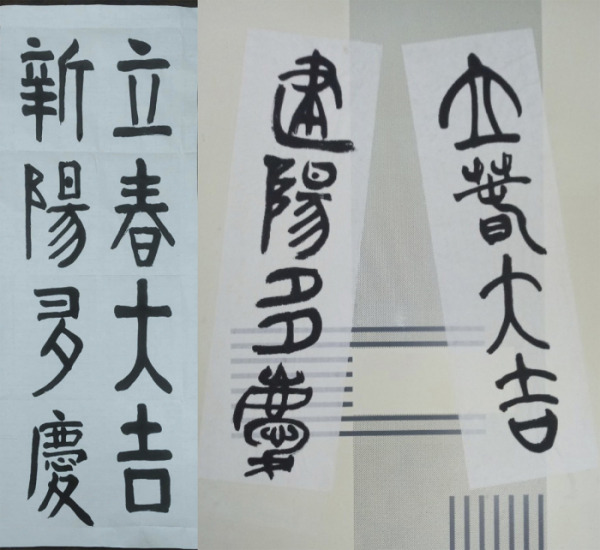 立春大吉
新陽多慶
立春大吉
建陽多慶